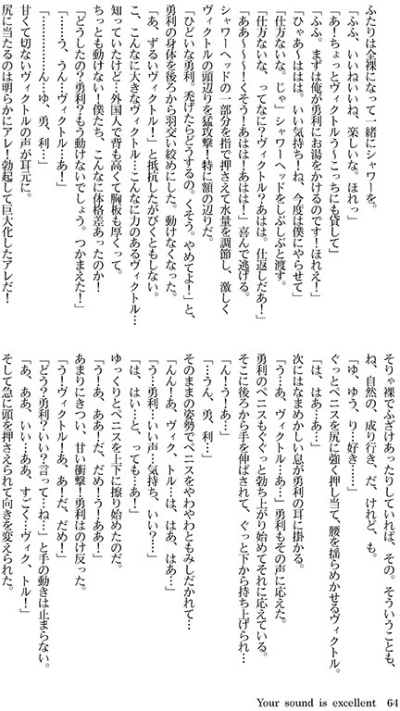 ふたりは全裸になって一緒にシャワーを。
「ふふ、いいねいいね、楽しいな。ほれっ」
「あ！ちょっとヴィクトルう～こっちにも貸して」
「ふふ。まずは俺が勇利にお湯をかけるのです！ほれえ！」
「ひゃあ～ははは。いい気持ち！ね、今度は僕にやらせて」
「仕方ないな。じゃ」シャワーヘッドをしぶしぶと渡す。
「仕方ないな、ってなに？ヴィクトル？あはは。仕返しだあ！」
「ああ～～～！くそう！あはは！あはは！」喜んで逃げる。
シャワーヘッドの一部分を指で押さえて水量を調節し、激しく
ヴィクトルの頭辺りを猛攻撃！特に額の辺りだ。
「ひどいな勇利、禿げたらどうするの。くそう。やめてよ！」と、
勇利の身体を後ろから羽交い絞めにした。動けなくなった。
「あ、ずるいヴィクトル！」と抵抗したがびくともしない。
こ、こんなに大きなヴィクトル…こんなに力のあるヴィクトル…
知っていたけど…外国人で背も高くて胸板も厚くって。
ちっとも動けない！僕たち、こんなに体格差あったのか！
「どうしたの？勇利？もう動けないでしょう。つかまえた！」
「……う、うん…ヴィクトル…あ！」
「……………ん…ゆ、勇、利…」
甘くて切ないヴィクトルの声が耳元に。
尻に当たるのは明らかにアレ！勃起して巨大化したアレだ！
そりゃ裸でふざけあったりしていれば、その。そういうことも、
ね、自然の、成り行き、だ、けれど、も。
「ゆ、ゆう、り…好き……」
ぐっとペニスを尻に強く押し当て、腰を揺らめかせるヴィクトル。
「は、はあ…あ…」
次にはなまめかしい息が勇利の耳に掛かる。
「う…あ、ヴィクトル…あ…」勇利もその声に応えた。
勇利のペニスもぐぐっと勃ち上がり始めてそれに応えている。
そこに後ろから手を伸ばされて、ぐっと下から持ち上げられ…
「ん！う！あ！」
「…うん、勇、利…」
そのままの姿勢でペニスをやわやわともみしだかれて…
「んん！あ、ヴィク、トル…は、はあ、はあ…」
「う…勇利…いい声…気持ち、いい？…」
「は、はい…と、っても…あ！」
ゆっくりとペニスを上下に擦り始めたのだ。
「う！あ、ああ！だ、だめ！う！ああ！」
あまりにきつい、甘い衝撃！勇利はのけ反った。
「う！ヴィクトル！あ、あ！だ、だめ！」
「どう？勇利？いい？言って…ね…」と手の動きは止まらない。
「あ、ああ、いい…ああ、すご…ヴィク、トル！」
そして急に頭を押さえられて向きを変えられた。
Your sound is excellent 64